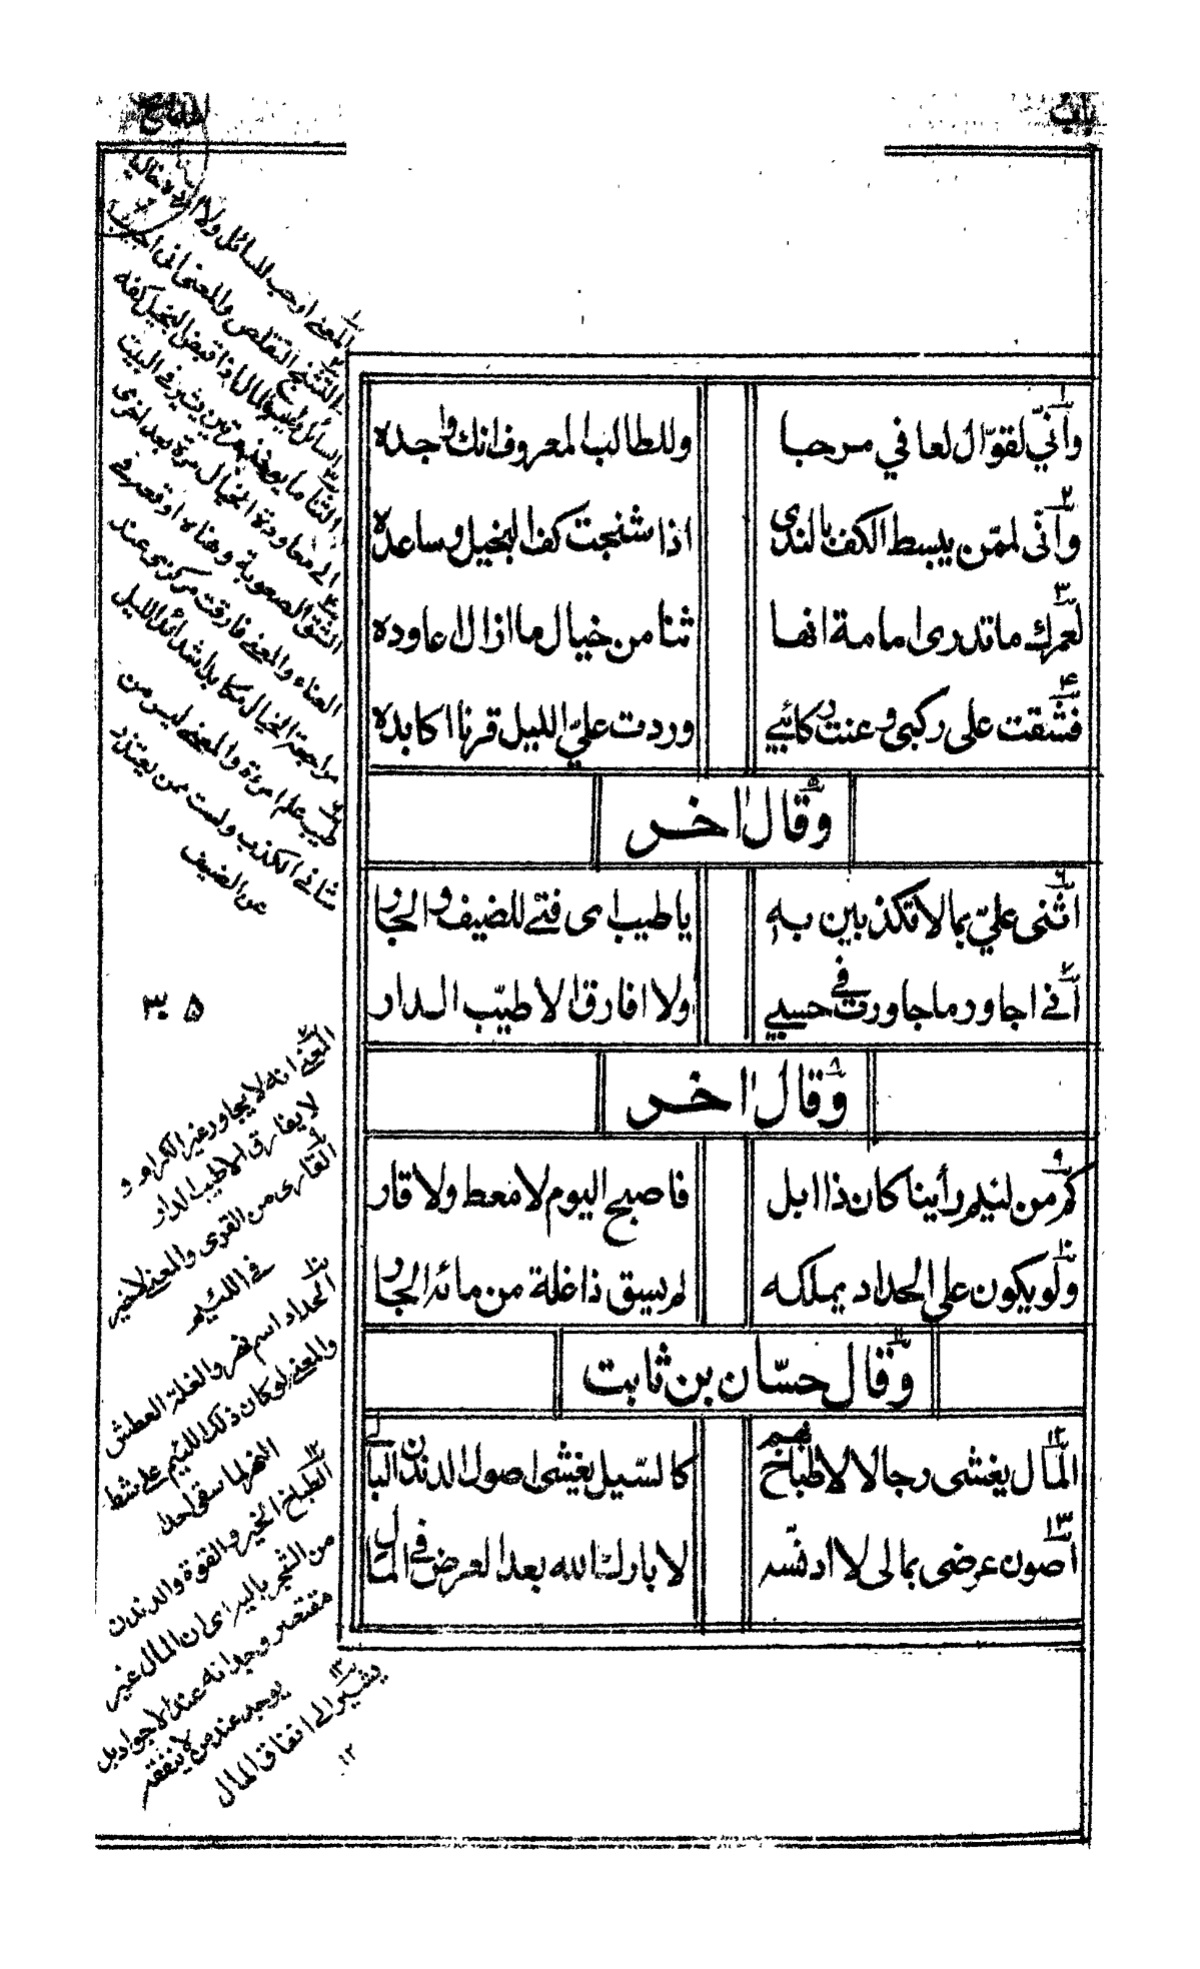 باب
المدائح
وانّي لقوّال لعافي مرحبا
وللطالب المعروف انك واجده
وانّى لممّن يبسط الكف بالندى
اذا شنجت كف البخيل وساعده
لعمرك ماتدرى امامة انها
ثنا من خيال ما ازال اعاوده
فشقت على ركبى وعنت ركائبي
وردت عليّ الليل قرنا اكابده
وقال اخر
اثنى عليّ بمالا تكذبين به
ياطيب اى فتى للضيف والجار
انّى اجاور ماجاورت في حسبي
ولا افارق الا طيّب الدار
وقال اخر
كم من لئيم رأينا كان ذا ابل
فاصبح اليوم لامعط ولا قار
ولو يكون على الحداد يملكه
لم يسق ذاغلة من مائه الجار
وقال حسّان بن ثابت
المال يغشى رجالا لاطباخ بهم
كالسّيل يغشى اصول الدندن البالى
اصون عرضى بمالى لا ادنسّه
لا بارك الله بعد العرض في المال
المعنى ارحب للسائل ولا
التشنج التقلص والمعنى انى اجيب
السائل واعطيه المال اذا قبض البخيل كفه
الى معاودة الخيال مرة بعد اخرى
العناء والمعنى فارقت مركزى عند
مراجعة الخيال مكابدا شدائد الليل
طيب علم امرءة والمعنى ليس من
شانى الكذب ولست ممن يعتذر
عن الضيف
۳۵
المعنى انه لا يجاور غير الكرام و
لا يفارق الا طيب الدار
القارى من القرى والمعنى لا خير
فى اللئيم
الحداد اسم نهر والغلة العطش
والمعنى لو كان ذلك اللئيم على شط
النهر لما سقى احدا
الطباخ الخير والقوة والدندن
من الشجر باليه اى ان المال غير
مقتصر وجدانه عند الاجواد بل
يوجد عند من لا ينفقه
يشير الى انفاق المال
۱۲